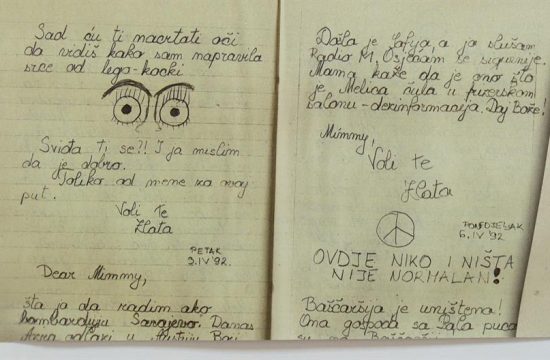 Sad ću ti nacrtati oči
da vidiš kako sam napravila
srce od lego-kocki
Sviđa ti se?!! I ja mislim
da je dobro.
Toliko od mene za ovaj
put.
Voli te
Zlata
PETAK
3.IV '92.
Dear Mimmy,
šta ja da radim ako
bombarduju Sarajevo. Danas
Došla je Safija, a ja slušam
Radio M. Osjećam se sigurnije.
Mama kaže da je ono što
je Melica čula u frizerskom
salonu-dezinformacija. Daj Bože.
Mimmy,
Voli te
Zlata
PONEDJELJAK
6.IV '92
OVDJE NIKO I NIŠTA
NIJE NORMALAN!
Baščaršija je uništena!
Ona gospoda sa Pala puca